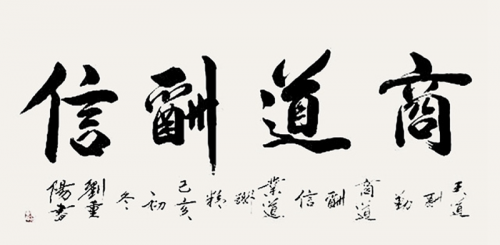 商道酬信
天道酬勤商道酬信業道酬精己亥初冬劉重陽書